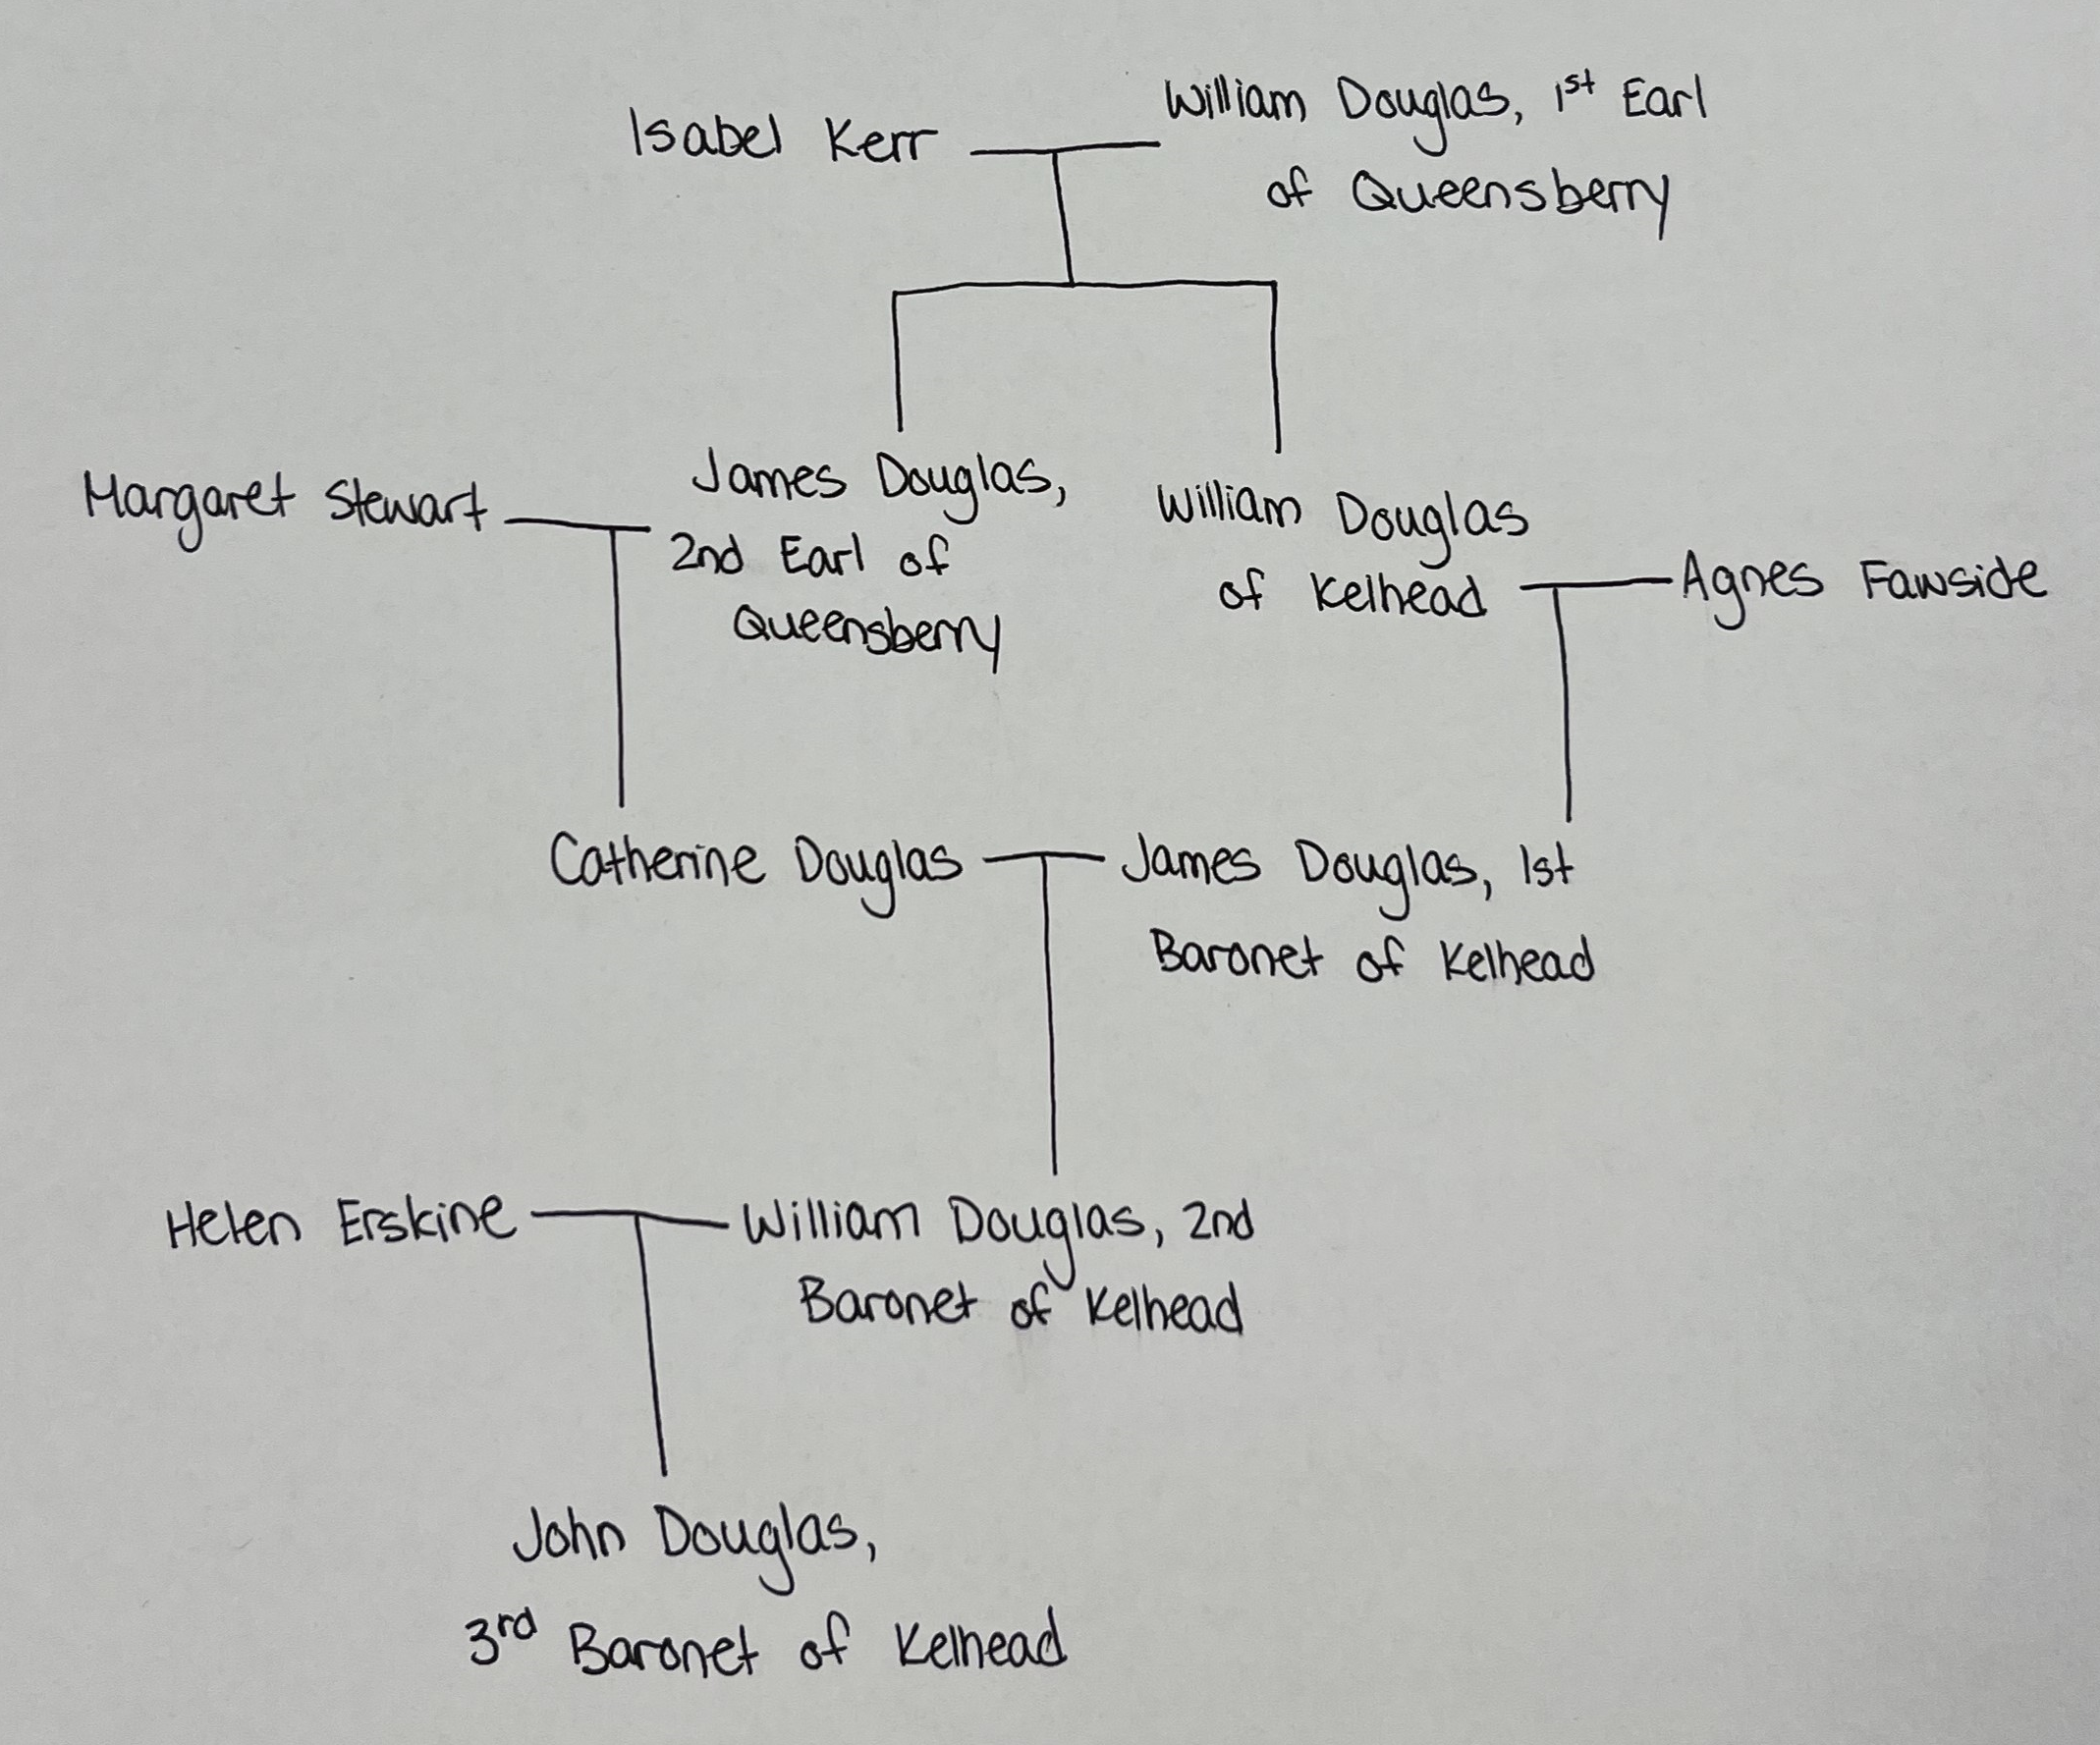 Isabel Kerr
William Douglas, 1st Earl
of Queensberry
Margaret Stewart
James Douglas,
2nd Earl of
Queensberry
William Douglas
of Kelhead
Agnes Fawside
Catherine Douglas
James Douglas, 1st
Baronet of Kelhead
Helen Erskine
William Douglas, 2nd
Baronet of Kelhead
John Douglas,
3rd Baronet of Kelhead